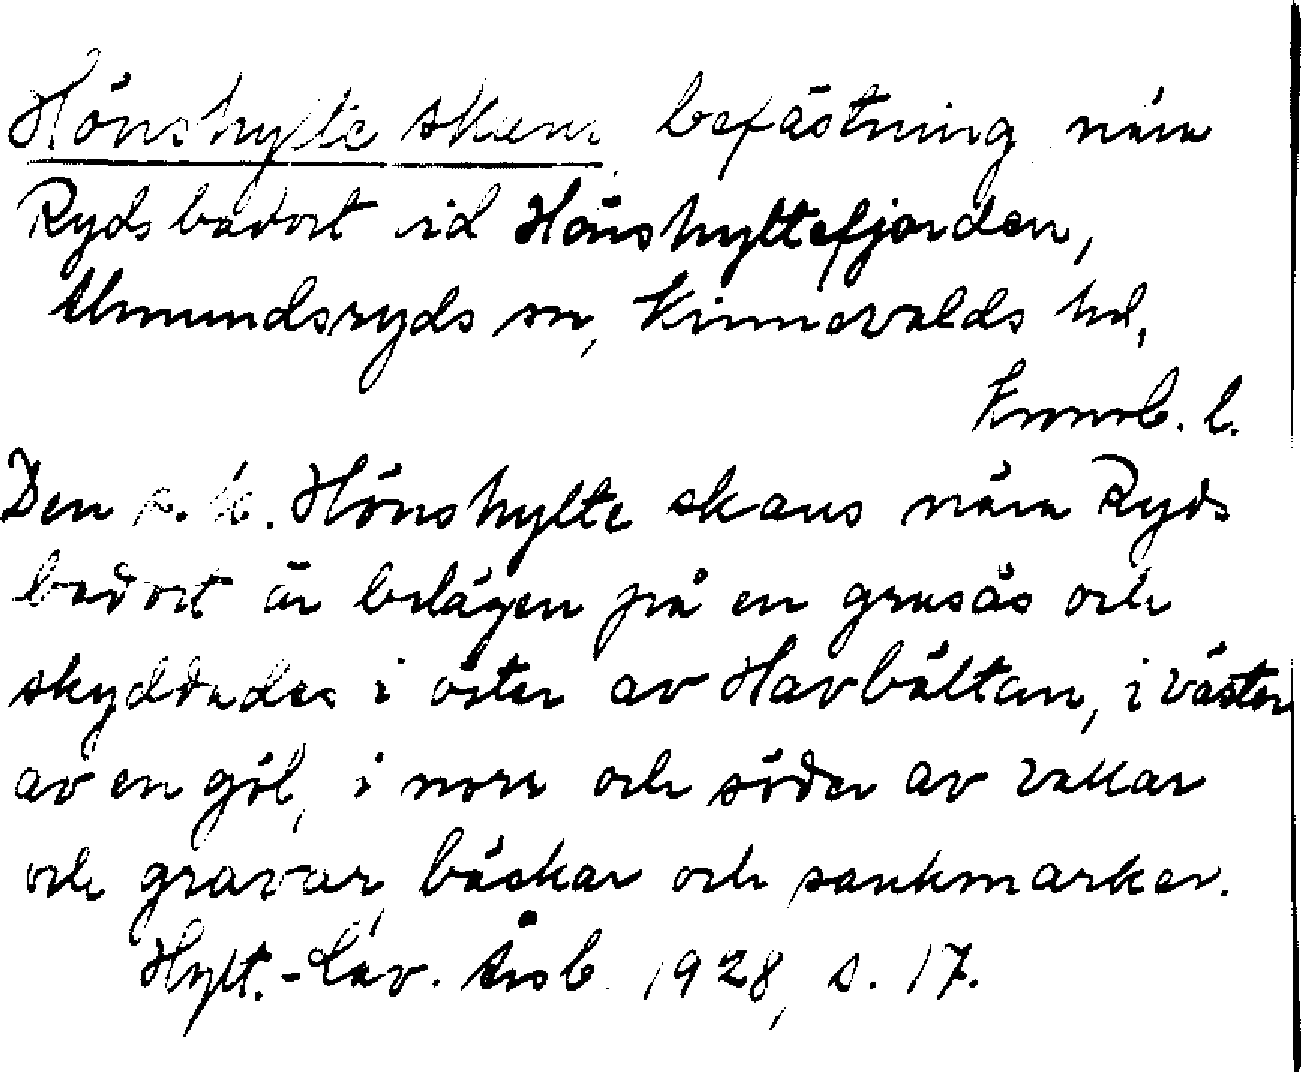 Hönshylte skans, befästning nära
Ryds badort vid Hönshyltefjorden,
Almundsryds sn, Kinnevalds hd,
Kronob. l.
Den s. k. Hönshylte skans nära Ryds
badort är belägen på en grusås och
skyddades i öster av Havbältan, i väster
av en göl, i norr och söder av vallar
och gravar, bäckar och sankmarker.
Hylt.-Cav. Årsb. 1928, s. 17.